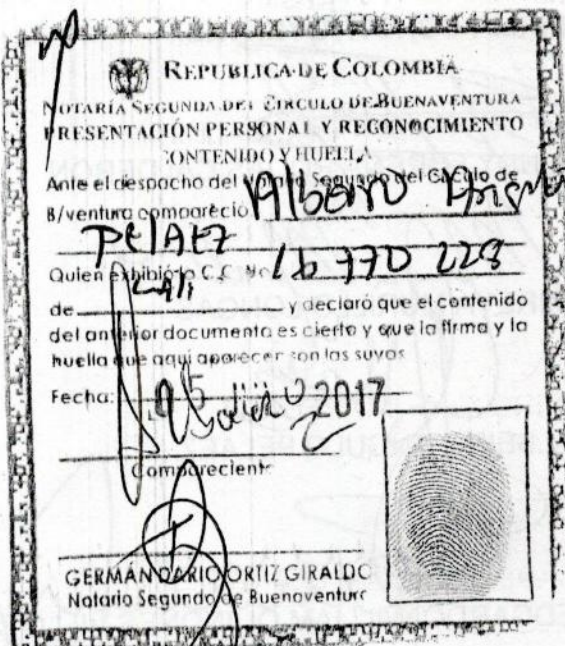 REPUBLICA DE COLOMBIA
NOTARÍA SEGUNDA DEL CIRCULO DE BUENAVENTURA
PRESENTACIÓN PERSONAL Y RECONOCIMIENTO
CONTENIDO Y HUELLA
Ante el despacho del Notario Segundo del Circulo de
B/ventura compareció Alberto
PELAEZ
Quien exhibió la C.C. No. 16 770 223
de Cali y declaró que el contenido
del anterior documento es cierto y que la firma y la
huella que aqui aparecen son las suyas
Fecha: 2017
Compareciente
GERMAN DARIO ORTIZ GIRALDO
Notario Segundo de Buenaventura